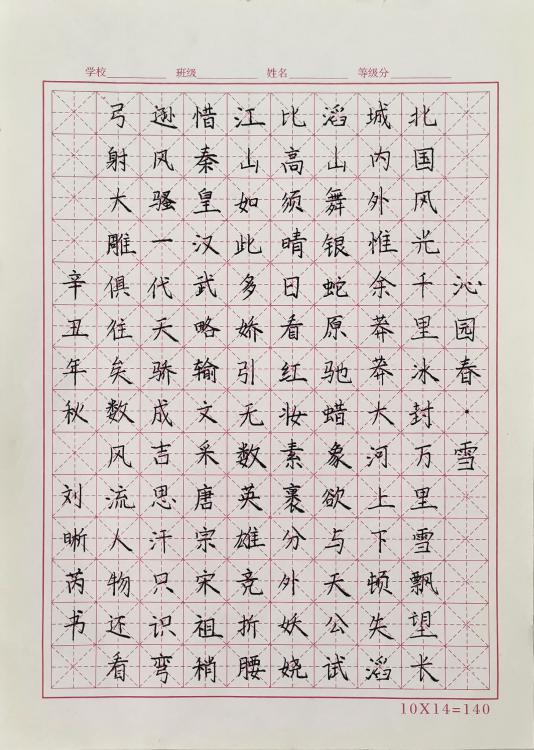 学校 班级 姓名 等级分
沁园春·雪
北国风光千里冰封万里雪飘望长
城内外惟余莽莽大河上下顿失滔
滔山舞银蛇原驰蜡象欲与天公试
比高须晴日看红妆素裹分外妖娆
江山如此多娇引无数英雄竞折腰
惜秦皇汉武略输文采唐宗宋祖稍
逊风骚一代天骄成吉思汗只识弯
弓射大雕俱往矣数风流人物还看
辛丑年秋 刘晰芮书
10X14=140